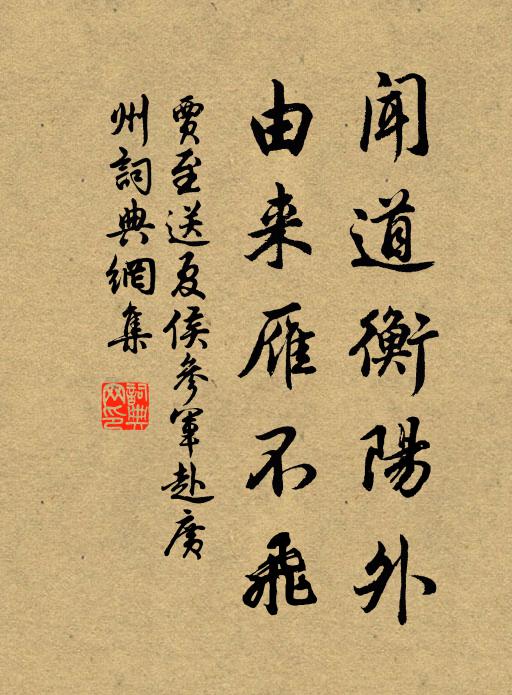 聞道衡陽外
由来雁不飛
賈至送夏侯參軍赴廣
州詞典網集
詞典網印